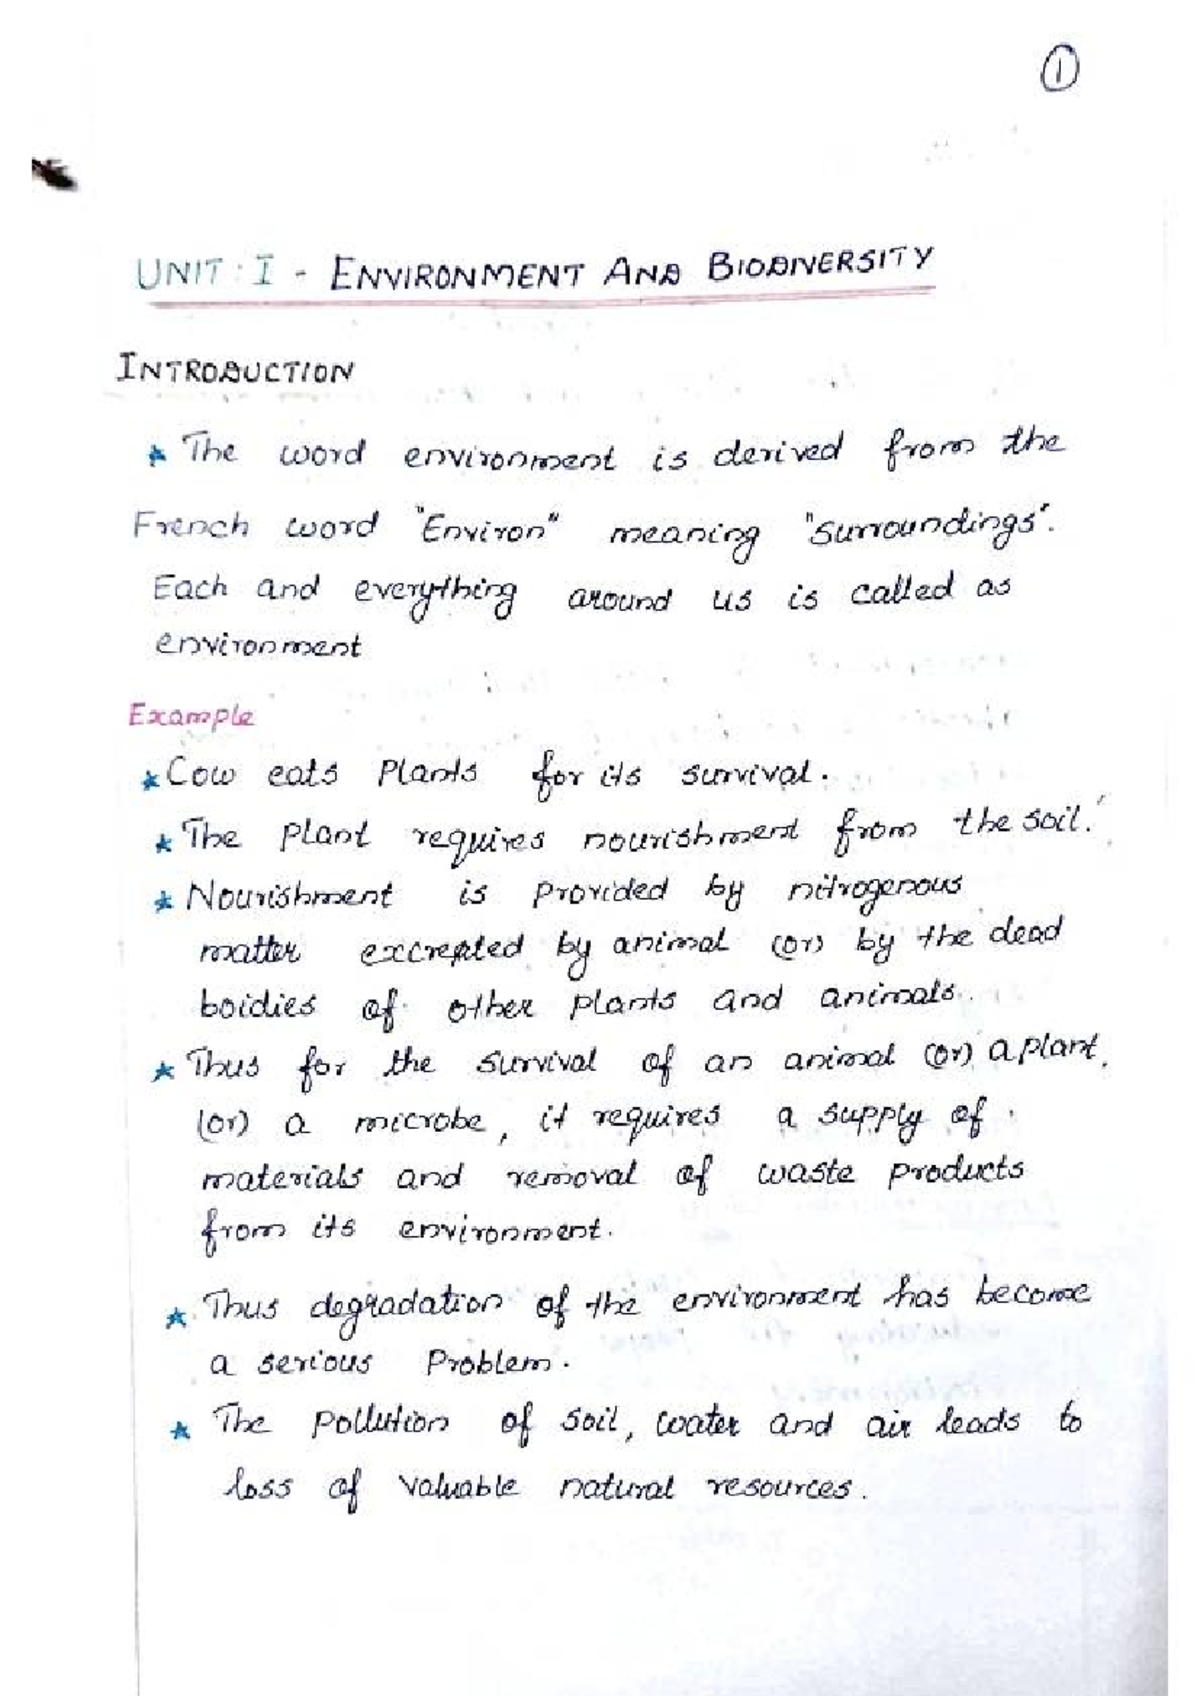 1
UNIT : I - ENVIRONMENT AND BIODIVERSITY
INTRODUCTION
* The word environment is derived from the
French word "Environ" meaning "Surroundings".
Each and everything around us is called as
environment
Example
* Cow eats Plants for its survival.
* The plant requires nourishment from the soil.
* Nourishment is provided by nitrogenous
matter excreated by animal (or) by the dead
boidies of other plants and animals.
* Thus for the survival of an animal (or) a plant,
(or) a microbe, it requires a supply of
materials and removal of waste products
from its environment.
* Thus degradation of the environment has become
a serious Problem.
* The pollution of soil, water and air leads to
loss of valuable natural resources.